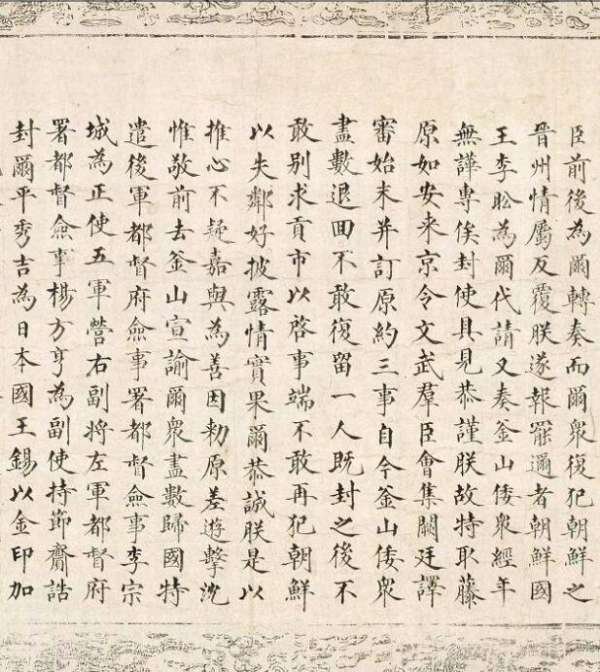 臣前後為爾轉奏而爾衆復犯朝鮮之
晉州情屬反覆朕遂報罷邇者朝鮮國
王李昖為爾代請又奏釜山倭衆經年
無譁專俟封使具見恭謹朕故特取藤
原如安来京令文武羣臣會集闕廷譯
審始末并訂原約三事自今釜山倭衆
盡數退回不敢復留一人既封之後不
敢别求貢市以啓事端不敢再犯朝鮮
以失鄰好披露情實果爾恭誠朕是以
推心不疑嘉與為善因勑原差遊擊沈
惟敬前去釜山宣諭爾衆盡數歸國特
遣後軍都督府僉事署都督僉事李宗
城為正使五軍營右副將左軍都督府
署都督僉事楊方亨為副使持節齎誥
封爾平秀吉為日本國王錫以金印加